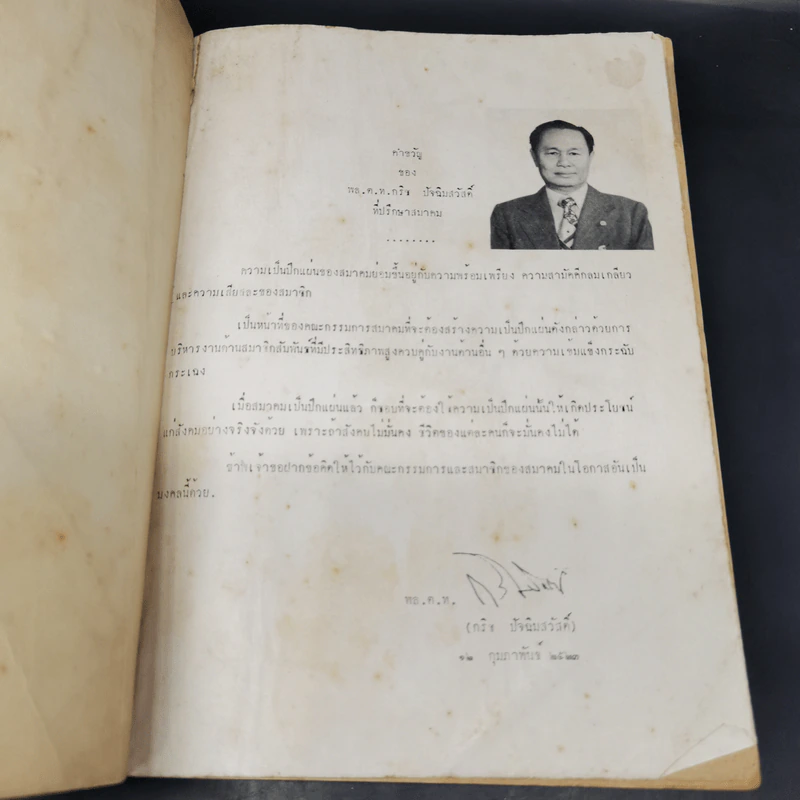 คำขวัญ
ของ
พล.ต.ท.กริช ปัจฉิมสวัสดิ์
ที่ปรึกษาสมาคม
........
ความเป็นปึกแผ่นของสมาคมย่อมขึ้นอยู่กับความพร้อมเพรียง ความสามัคคีกลมเกลียว
และความเสียสละของสมาชิก
เป็นหน้าที่ของคณะกรรมการสมาคมที่จะต้องสร้างความเป็นปึกแผ่นดังกล่าวด้วยการ
บริหารงานด้านสมาชิกสัมพันธ์ที่มีประสิทธิภาพสูงควบคู่กับงานด้านอื่น ๆ ด้วยความเข้มแข็งกระฉับ
กระเฉง
เมื่อสมาคมเป็นปึกแผ่นแล้ว ก็ชอบที่จะต้องใช้ความเป็นปึกแผ่นนั้นให้เกิดประโยชน์
แก่สังคมอย่างจริงจังด้วย เพราะถ้าสังคมไม่มั่นคง ชีวิตของแต่ละคนก็จะมั่นคงไม่ได้
ข้าพเจ้าขอฝากข้อคิดให้ไว้กับคณะกรรมการและสมาชิกของสมาคมในโอกาสอันเป็น
มงคลนี้ด้วย.
พล.ต.ท.
(กริช ปัจฉิมสวัสดิ์)
๑๒ กุมภาพันธ์ ๒๕๒๓